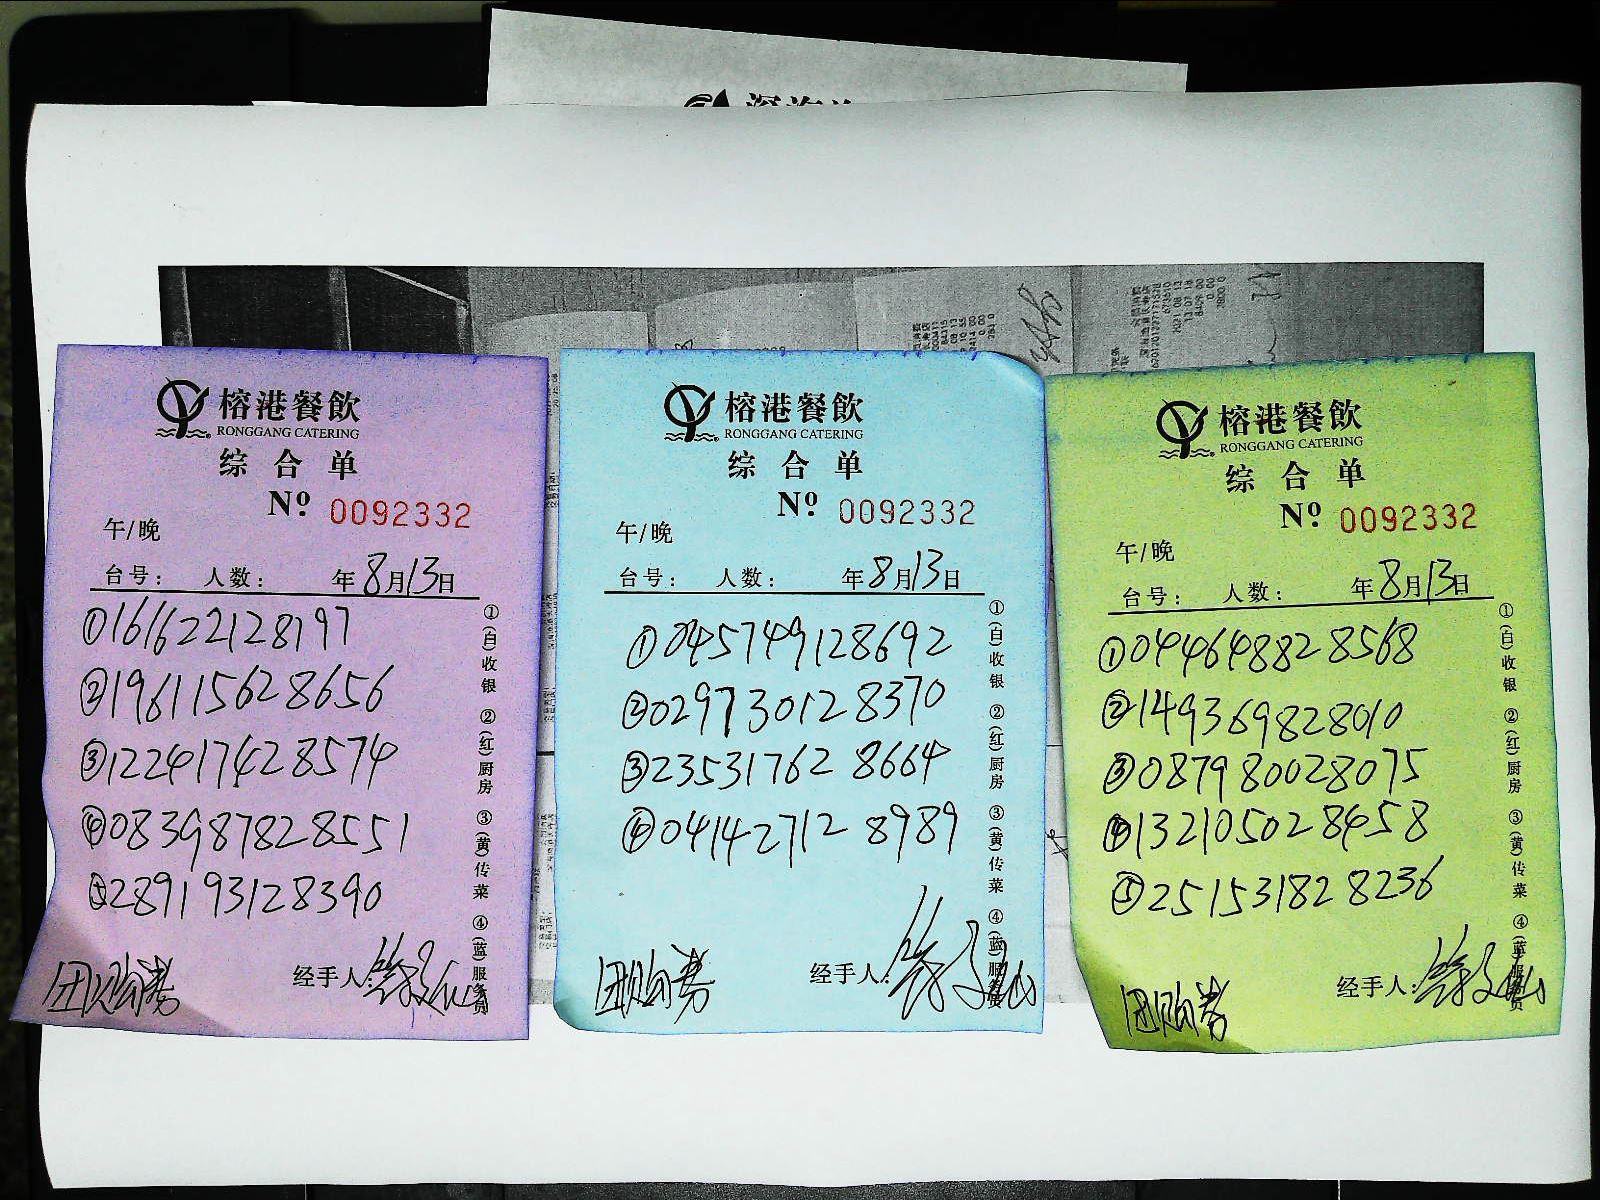 榕港餐飲
RONGGANG CATERING
综合单
Nº 0092332
午/晚
台号： 人数： 年8月13日
①161622128197
②196115628656
③122417428574
④083987828551
⑤289193128390
①(白)收银 ②(红)厨房 ③(黄)传菜 ④(蓝)服务员
团购券
经手人:
榕港餐飲
RONGGANG CATERING
综合单
Nº 0092332
午/晚
台号： 人数： 年8月13日
①045749128692
②029730128370
③235317628664
④041427128989
①(白)收银 ②(红)厨房 ③(黄)传菜 ④(蓝)服务员
团购券
经手人:
榕港餐飲
RONGGANG CATERING
综合单
Nº 0092332
午/晚
台号： 人数： 年8月13日
①044648828568
②149369828010
③087980028075
④132105028458
⑤251531828236
①(白)收银 ②(红)厨房 ③(黄)传菜 ④(蓝)服务员
团购券
经手人: